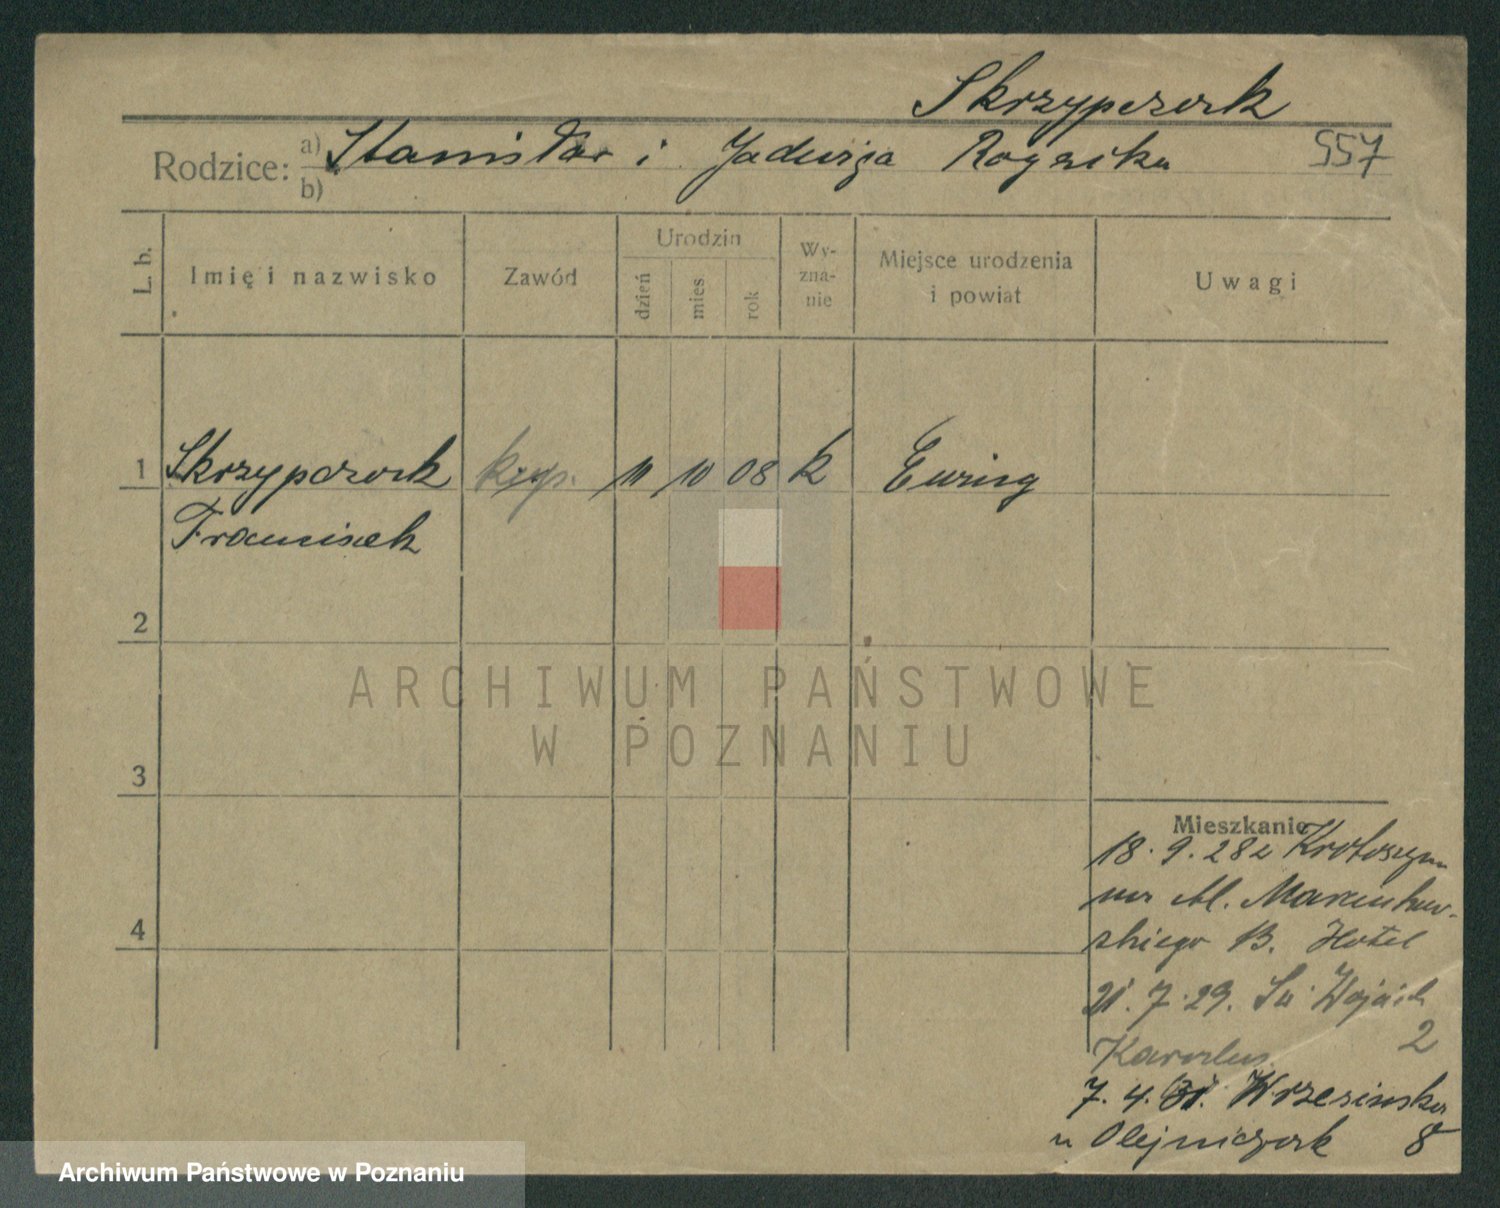 Skrzypczak
Rodzice: a) Stanisław i Jadwiga 557
b)
L. b. Imię i nazwisko Zawód Urodzin dzień mies rok Wyznanie Miejsce urodzenia i powiat Uwagi
1 Skrzypczak 11 10 08 k
Franciszek
2
ARCHIWUM PAŃSTWOWE
W POZNANIU
3
4
Mieszkanie
18. 9. 28 z Krotoszyna
Marcinkow-
skiego B. Hotel
21. 7. 29. Św Wojciech
2
7. 4. 31. Wrzesińska
u Olejniczak 8
Archiwum Państwowe w Poznaniu